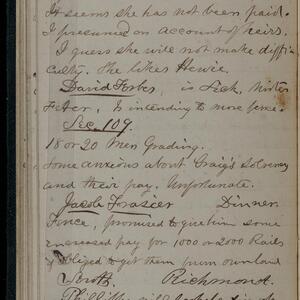 It seems she has not been paid.
I presumed on account of heirs.
I guess she will not make diffi-
culty. She likes Hewie.
David Forbes, is sick, Mister
Feter, & intending to move fence.
Sec. 109.
18 or 20 Men Grading.
Some anxious about Graig's solvency
and their pay. Unfortunate.
Jacob Frasier Dinner.
Fence, promised to give him some
increased pay for 1000 or 2000 Rails
obliged to get them from own land
South Richmond.